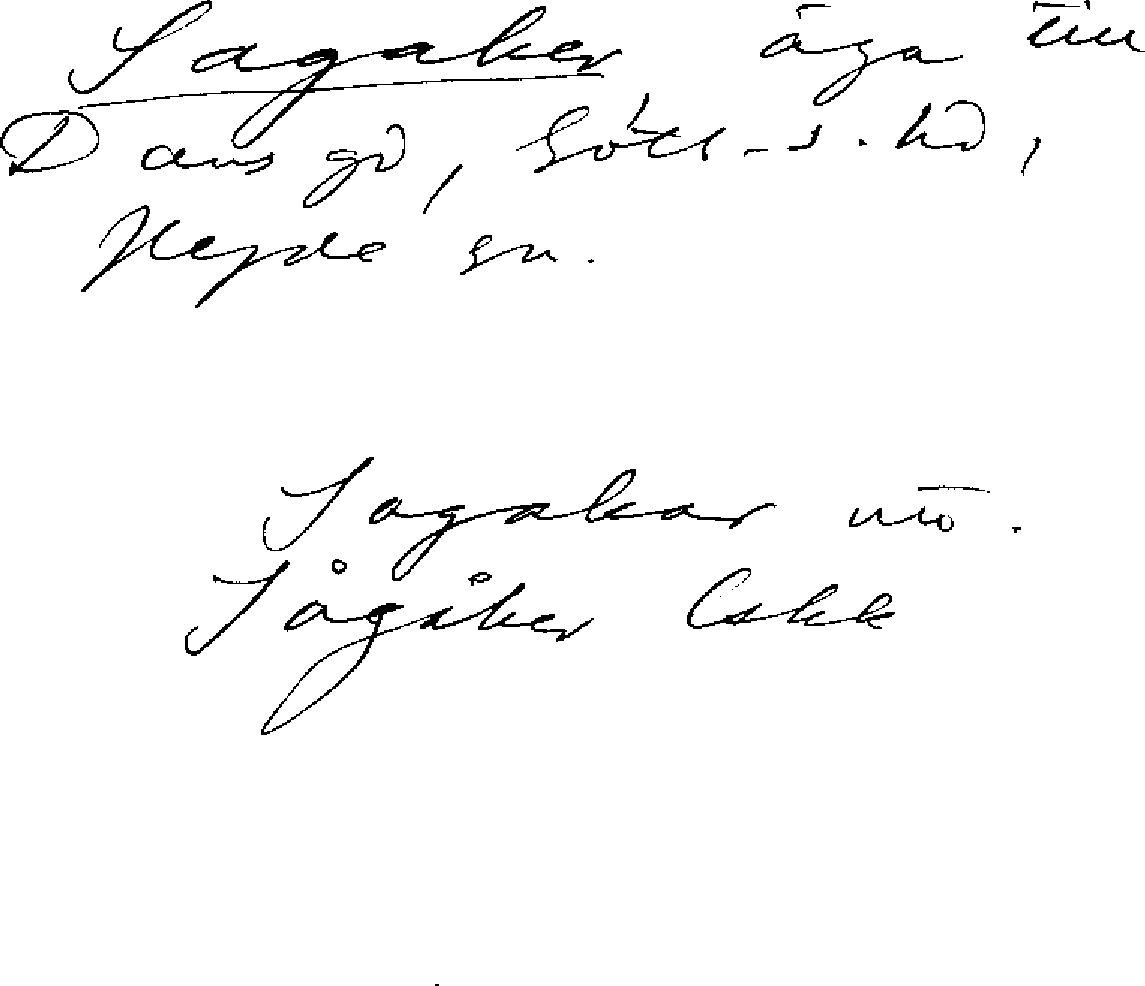 Sagaker äga till
Dans gd, Gotl. s. hd,
Hejde sn.
Sagakar utt.
Sågåker Eskk